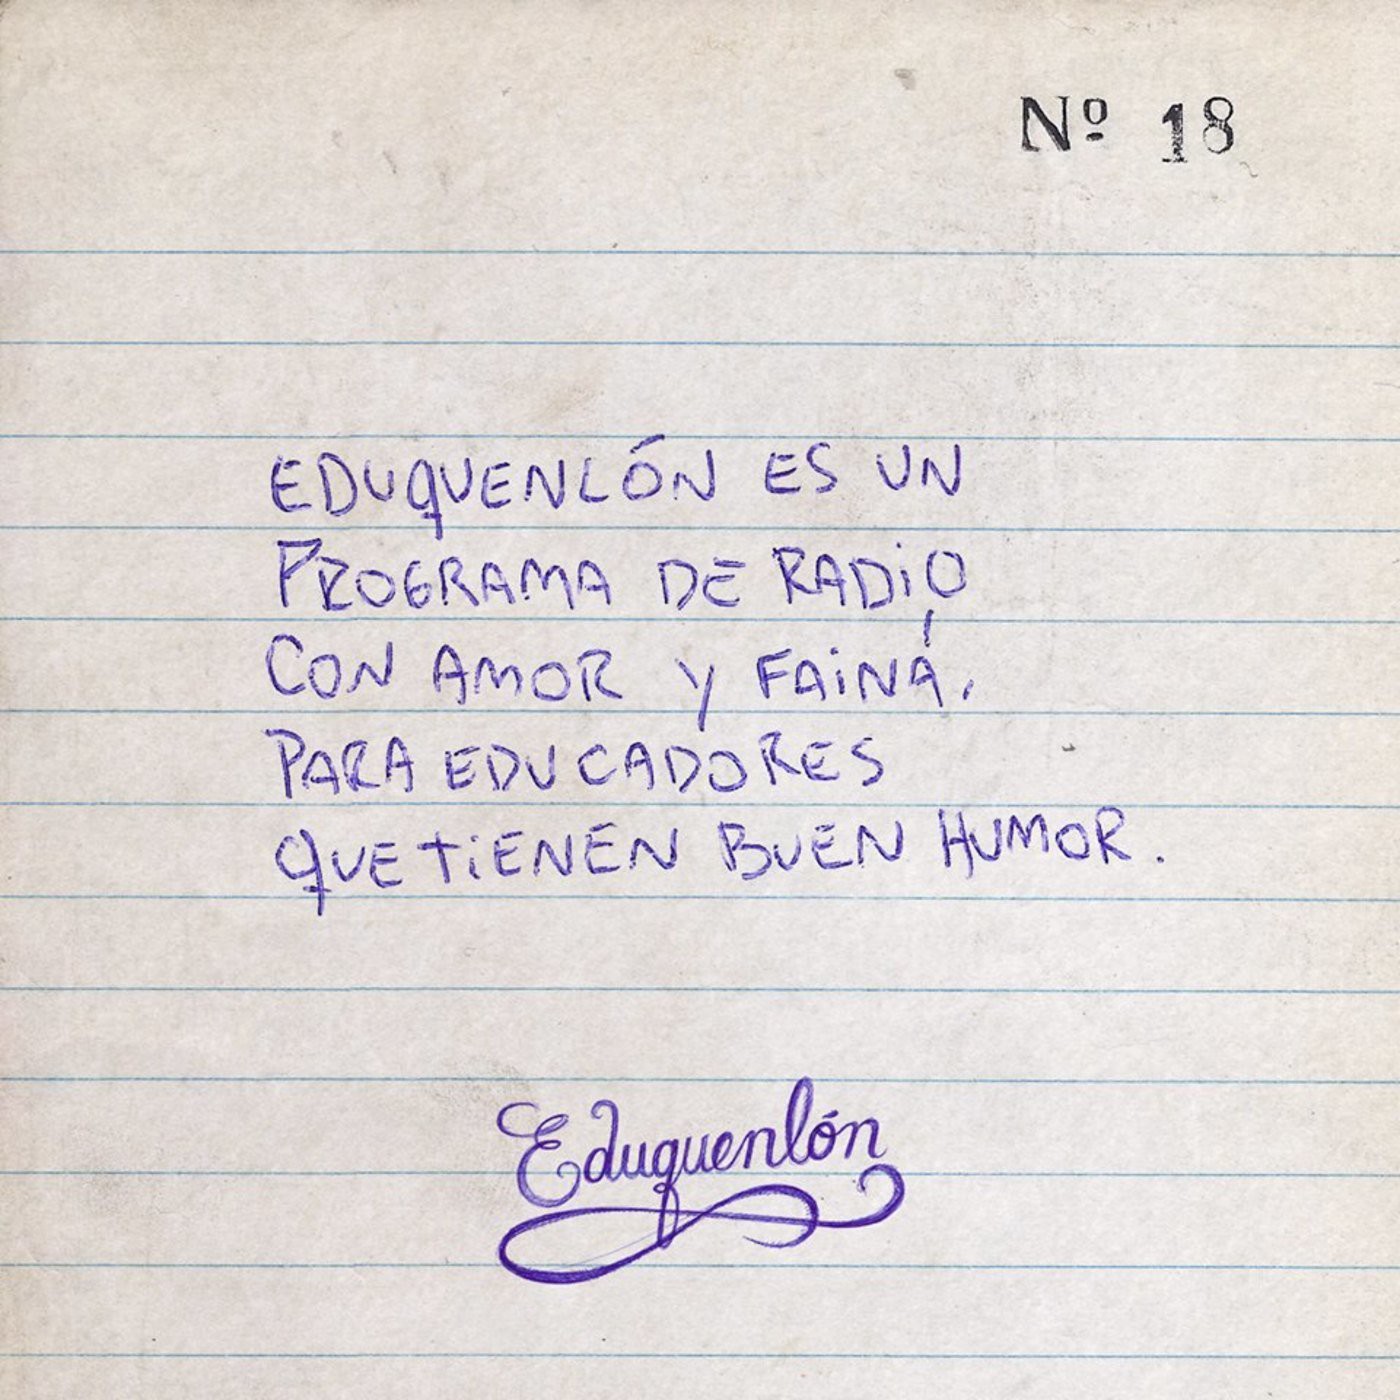 Nº 18
EDUQUENLÓN ES UN
PROGRAMA DE RADiO
CON AMOR Y FAiNÁ.
PARA EDUCADORES
QUE TiENEN BUEN HUMOR.
Eduquenlón